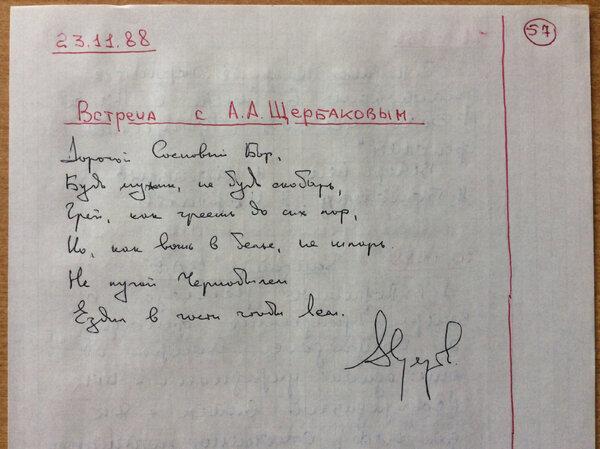 23.11.88
57
Встреча с А.А.Щербаковым.
Дорогой Сосновый Бор,
Будь нужен, не будь скобарь,
Грей, как греешь до сих пор,
Но, как вошь в белье, не шпарь.
Не пугай Чернобылем
Ездил в гости чтобы